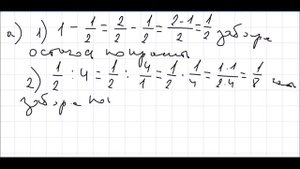 а) 1) 1 - 1/2 = 2/2 - 1/2 = (2-1)/2 = 1/2 забора
осталось покрасить
2) 1/2 : 4 = 1/2 : 4/1 = 1/2 · 1/4 = (1·1)/(2·4) = 1/8
забора